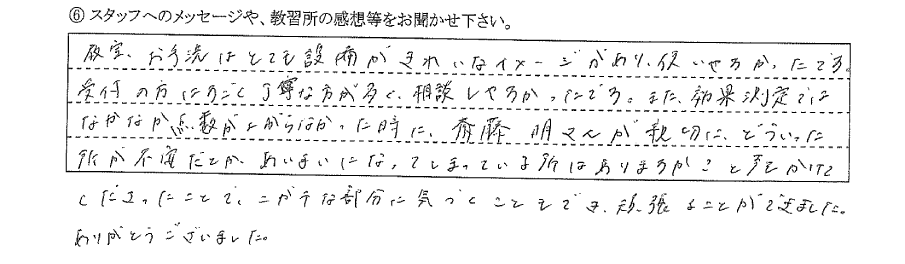 ⑥ スタッフへのメッセージや、教習所の感想等をお聞かせ下さい。
教室、お手洗はとても設備がきれいなイメージがあり、使いやすかったです。
受付の方はすごく丁寧な方が多く、相談しやすかったです。また、効果測定では
なかなか点数が上がらなかった時に、齋藤 明さんが親切に、どういった
所が不安だとか、あいまいになってしまっている所はありますか?と声をかけて
くださったことで、ニガテな部分に気づくこともでき、頑張ることができました。
ありがとうございました。